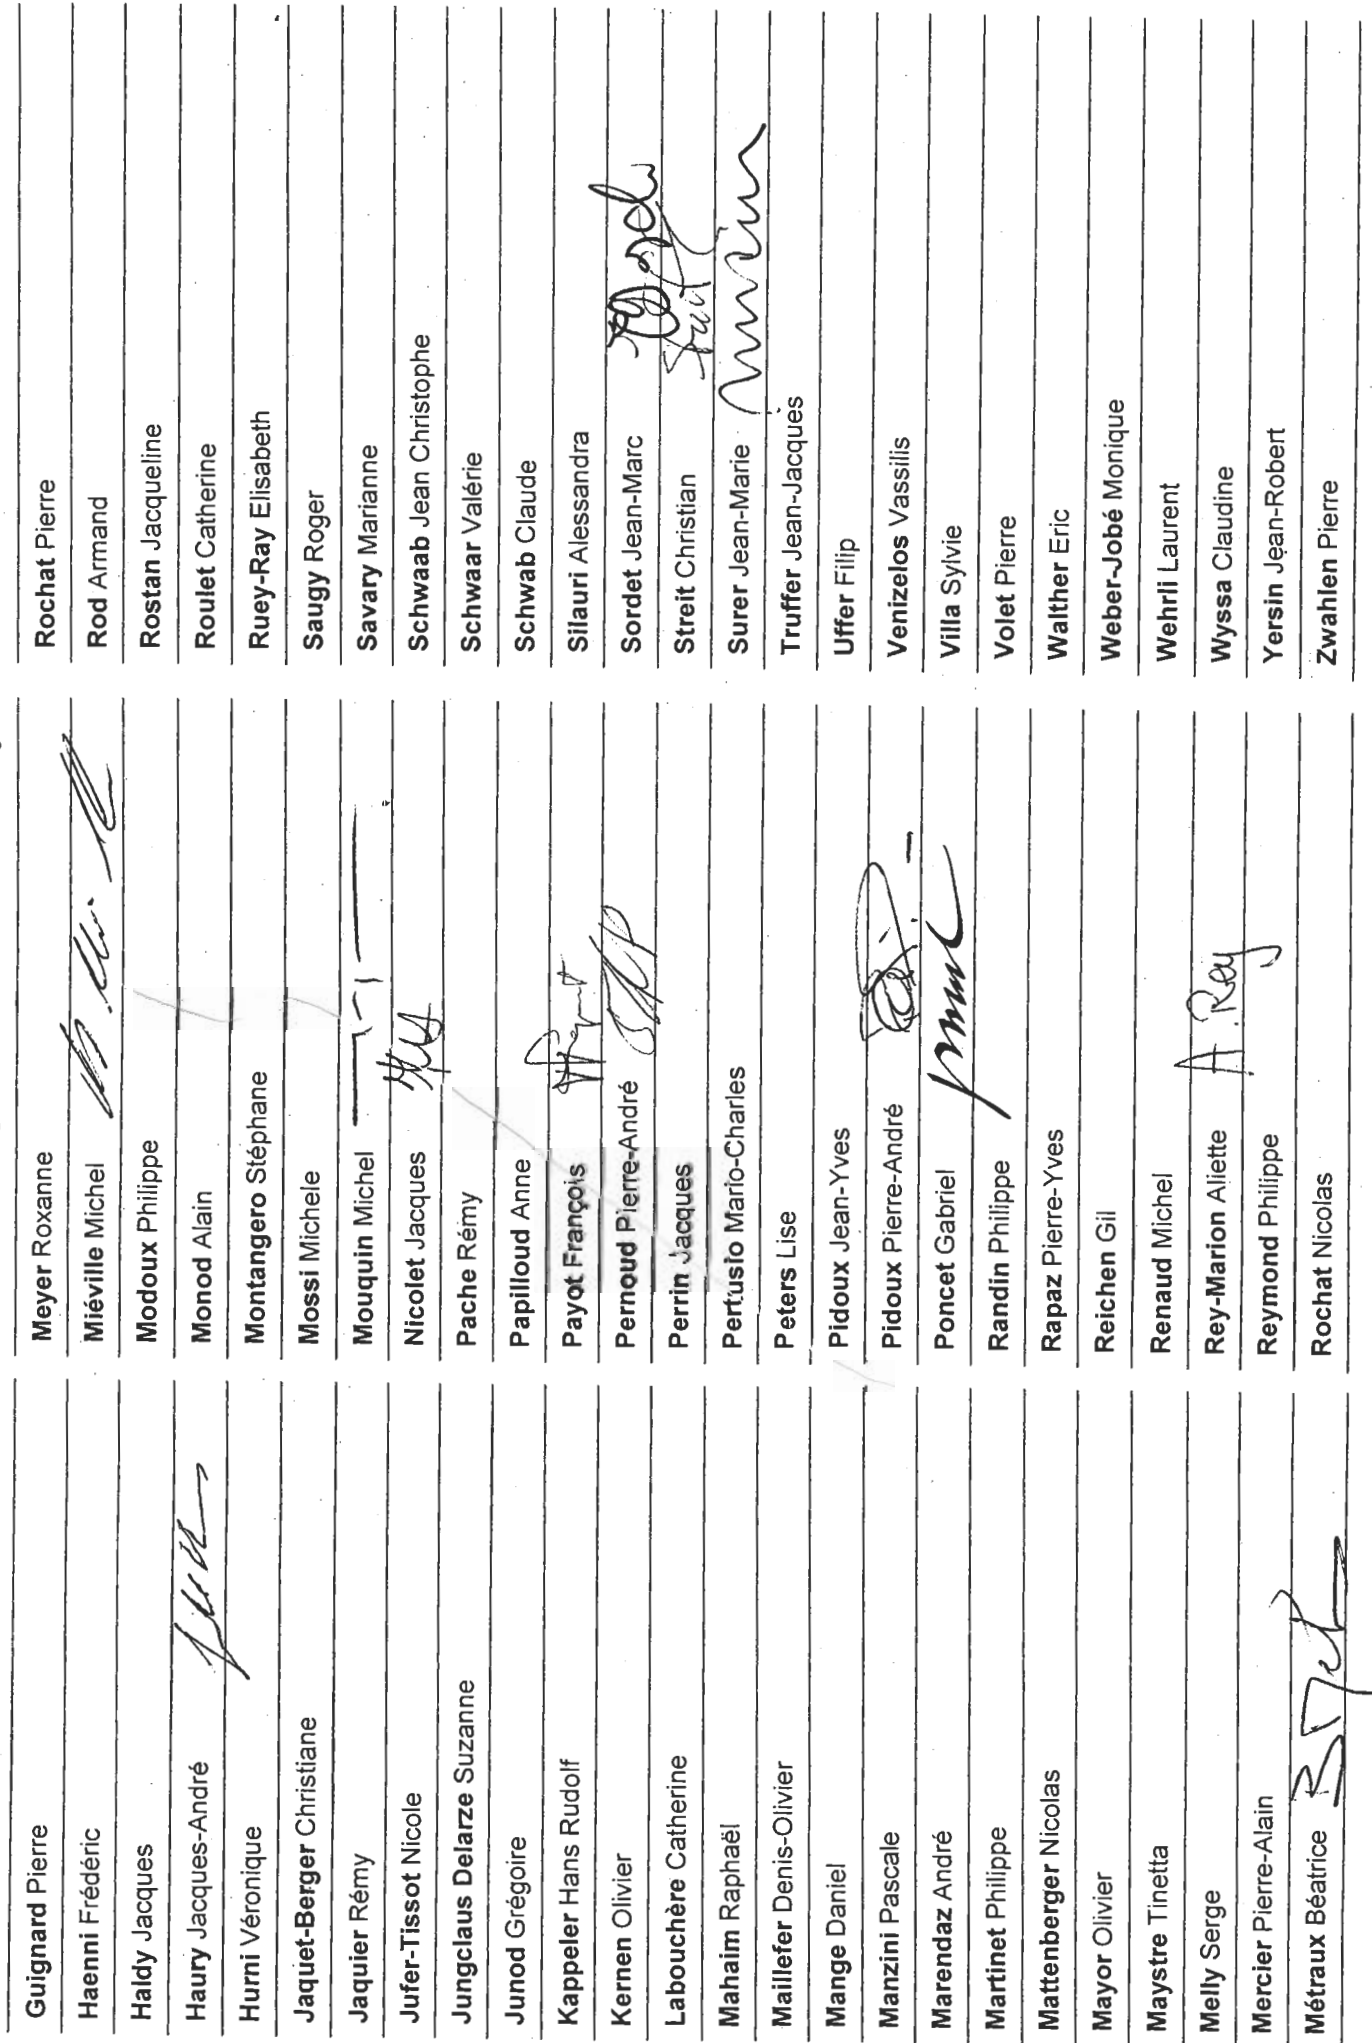 Guignard Pierre
Haenni Frédéric
Haldy Jacques
Haury Jacques-André
Hurni Véronique
Jaquet-Berger Christiane
Jaquier Rémy
Jufer-Tissot Nicole
Jungclaus Delarze Suzanne
Junod Grégoire
Kappeler Hans Rudolf
Kernen Olivier
Labouchère Catherine
Mahaim Raphaël
Maillefer Denis-Olivier
Mange Daniel
Manzini Pascale
Marendaz André
Martinet Philippe
Mattenberger Nicolas
Mayor Olivier
Maystre Tinetta
Melly Serge
Mercier Pierre-Alain
Métraux Béatrice
Meyer Roxanne
Miéville Michel
Modoux Philippe
Monod Alain
Montangero Stéphane
Mossi Michele
Mouquin Michel
Nicolet Jacques
Pache Rémy
Papilloud Anne
Payot François
Pernoud Pierre-André
Perrin Jacques
Pertusio Mario-Charles
Peters Lise
Pidoux Jean-Yves
Pidoux Pierre-André
Poncet Gabriel
Randin Philippe
Rapaz Pierre-Yves
Reichen Gil
Renaud Michel
Rey-Marion Aliette A. Rey
Reymond Philippe
Rochat Nicolas
Rochat Pierre
Rod Armand
Rostan Jacqueline
Roulet Catherine
Ruey-Ray Elisabeth
Saugy Roger
Savary Marianne
Schwaab Jean Christophe
Schwaar Valérie
Schwab Claude
Silauri Alessandra
Sordet Jean-Marc
Streit Christian
Surer Jean-Marie
Truffer Jean-Jacques
Uffer Filip
Venizelos Vassilis
Villa Sylvie
Volet Pierre
Walther Eric
Weber-Jobé Monique
Wehrli Laurent
Wyssa Claudine
Yersin Jean-Robert
Zwahlen Pierre